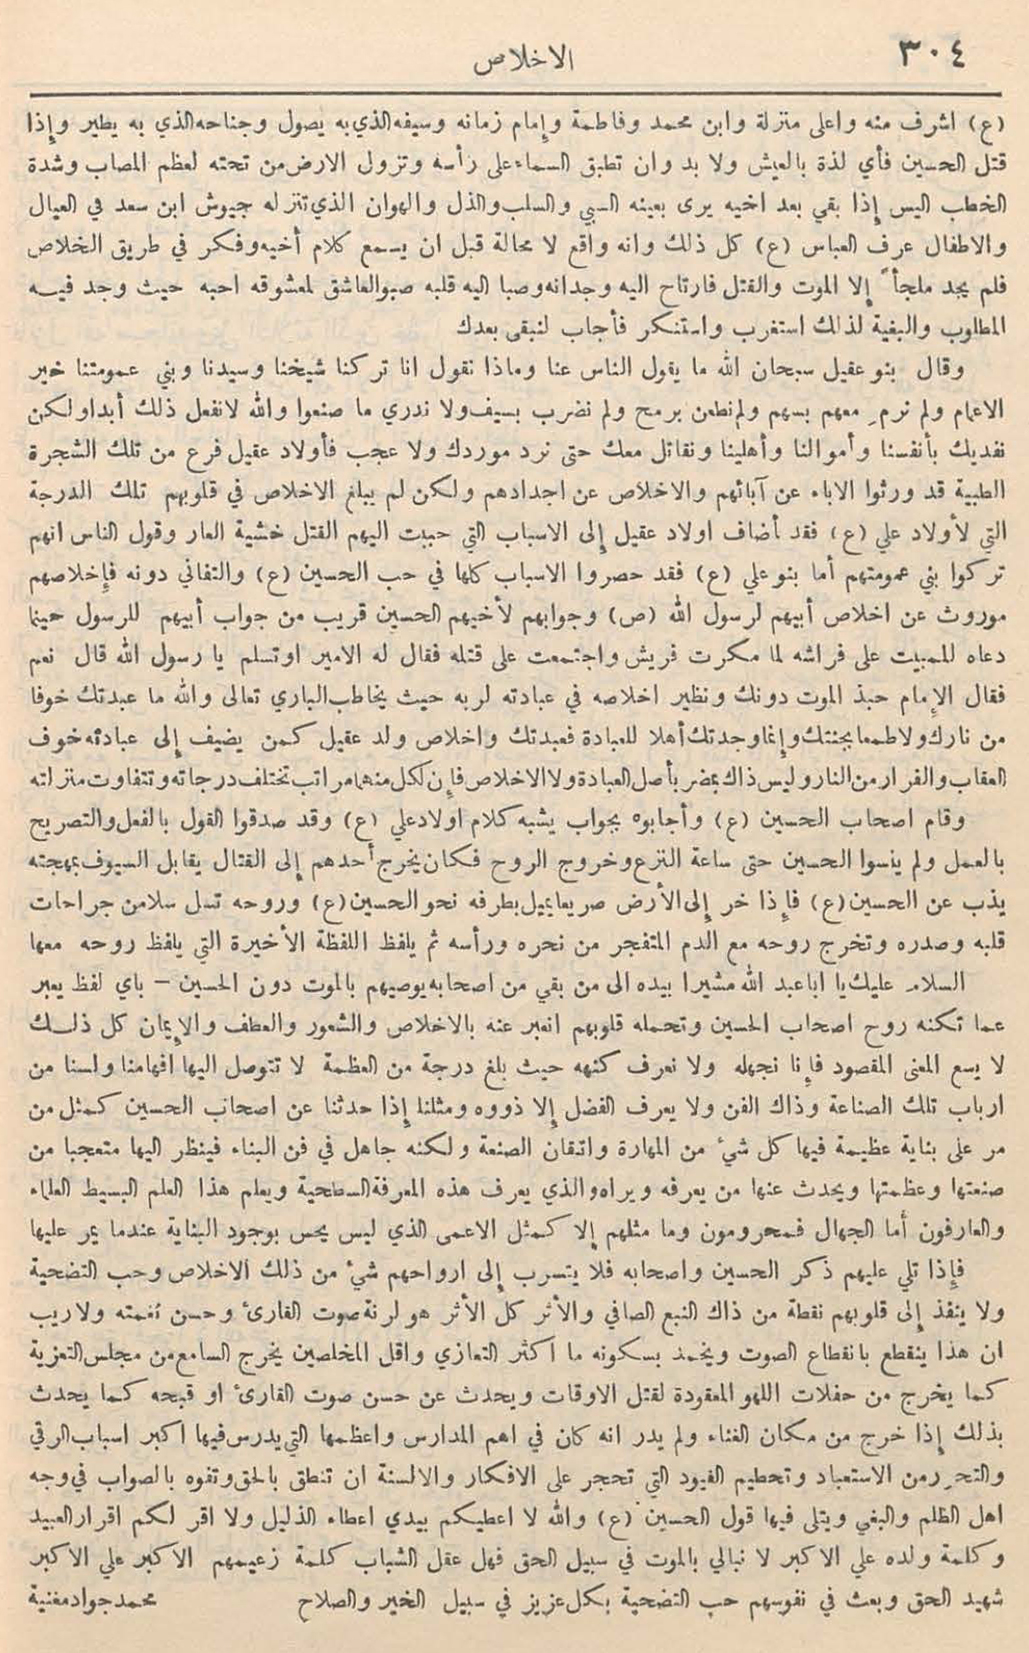 ٣٠٤
الاخلاص
(ع) اشرف منه واعلى منزلة وابن محمد وفاطمة وإمام زمانه وسيفه الذي به يصول وجناحه الذي به يطير وإذا
قتل الحسين فأي لذة بالعيش ولا بد وان تطبق السماء على رأسه وتزول الارض من تحته لعظم المصاب وشدة
الخطب اليس إذا بقي بعد اخيه يرى بعينه السبي والسلب والذل والهوان الذي تنزله جيوش ابن سعد في العيال
والاطفال عرف العباس (ع) كل ذلك وانه واقع لا محالة قبل ان يسمع كلام أخيه وفكر في طريق الخلاص
فلم يجد ملجأً إلا الموت والقتل فارتاح اليه وجدانه وصبا اليه قلبه صبو العاشق لمعشوقه احبه حيث وجد فيه
المطلوب والبغية لذلك استغرب واستنكر فأجاب لنبقى بعدك
وقال بنو عقيل سبحان الله ما يقول الناس عنا وماذا نقول انا تركنا شيخنا وسيدنا وبني عمومتنا خير
الاعمام ولم نرمِ معهم بسهم ولم نطعن برمح ولم نضرب بسيف ولا ندري ما صنعوا والله لا نفعل ذلك أبدا ولكن
نفديك بأنفسنا وأموالنا وأهلينا ونقاتل معك حتى نرد موردك ولا عجب فأولاد عقيل فرع من تلك الشجرة
الطيبة قد ورثوا الاباء عن آبائهم والاخلاص عن اجدادهم ولكن لم يبلغ الاخلاص في قلوبهم تلك الدرجة
التي لأولاد علي (ع) فقد أضاف اولاد عقيل إلى الاسباب التي حببت اليهم القتل خشية العار وقول الناس انهم
تركوا بني عمومتهم أما بنو علي (ع) فقد حصروا الاسباب كلها في حب الحسين (ع) والتفاني دونه فإخلاصهم
موروث عن اخلاص أبيهم لرسول الله (ص) وجوابهم لأخيهم الحسين قريب من جواب أبيهم للرسول حينما
دعاه للمبيت على فراشه لما مكرت قريش واجتمعت على قتله فقال له الامير اوتسلم يا رسول الله قال نعم
فقال الإمام حبذ الموت دونك ونظير اخلاصه في عبادته لربه حيث يخاطب الباري تعالى والله ما عبدتك خوفا
من نارك ولا طمعا بجنتك وإنما وجدتك أهلا للعبادة فعبدتك واخلاص ولد عقيل كمن يضيف إلى عبادته خوف
العقاب والفرار من النار وليس ذاك بمضر بأصل العبادة ولا الاخلاص فإن لكل منهما مراتب تختلف درجاته وتتفاوت منزلته
وقام اصحاب الحسين (ع) وأجابوه بجواب يشبه كلام اولاد علي (ع) وقد صدقوا القول بالفعل والتصريح
بالعمل ولم ينسوا الحسين حتى ساعة النزع وخروج الروح فكان يخرج أحدهم إلى القتال يقابل السيوف بمهجته
يذب عن الحسين (ع) فإذا خر إلى الأرض صريعا يميل بطرفه نحو الحسين (ع) وروحه تسل سلا من جراحات
قلبه وصدره وتخرج روحه مع الدم المتفجر من نحره ورأسه ثم يلفظ اللفظة الأخيرة التي يلفظ روحه معها
السلام عليك يا اباعبد الله مشيرا بيده الى من بقي من اصحابه يوصيهم بالموت دون الحسين – باي لفظ يعبر
عما تكنه روح اصحاب الحسين وتحمله قلوبهم انعبر عنه بالاخلاص والشعور والعطف والإيمان كل ذلك
لا يسع المعنى المقصود فإنا نجهله ولا نعرف كنهه حيث بلغ درجة من العظمة لا تتوصل اليها افهامنا ولسنا من
ارباب تلك الصناعة وذاك الفن ولا يعرف الفضل إلا ذووه ومثلنا إذا حدثنا عن اصحاب الحسين كمثل من
مر على بناية عظيمة فيها كل شيء من المهارة واتقان الصنعة ولكنه جاهل في فن البناء فينظر اليها متعجبا من
صنعتها وعظمتها ويحدث عنها من يعرفه ويراه والذي يعرف هذه المعرفة السطحية ويعلم هذا العلم البسيط العلماء
والعارفون أما الجهال فمحرومون وما مثلهم إلا كمثل الاعمى الذي ليس يحس بوجود البناية عندما يمر عليها
فإذا تلي عليهم ذكر الحسين واصحابه فلا يتسرب إلى ارواحهم شيء من ذلك الاخلاص وحب التضحية
ولا ينفذ إلى قلوبهم نقطة من ذاك النبع الصافي والأثر كل الأثر هو لرنة صوت القارئ وحسن نغمته ولا ريب
ان هذا ينقطع بانقطاع الصوت ويخمد بسكونه ما اكثر التعازي واقل المخلصين يخرج السامع من مجلس التعزية
كما يخرج من حفلات اللهو المعقودة لقتل الاوقات ويحدث عن حسن صوت القارئ او قبحه كما يحدث
بذلك إذا خرج من مكان الغناء ولم يدر انه كان في اهم المدارس واعظمها التي يدرس فيها اكبر اسباب الرقي
والتحرر من الاستعباد وتحطيم القيود التي تحجر على الافكار والالسنة ان تنطق بالحق وتفوه بالصواب في وجه
اهل الظلم والبغي ويتلى فيها قول الحسين (ع) والله لا اعطيكم بيدي اعطاء الذليل ولا اقر لكم اقرار العبيد
وكلمة ولده علي الاكبر لا نبالي بالموت في سبيل الحق فهل عقل الشباب كلمة زعيمهم الاكبر علي الاكبر
شهيد الحق وبعث في نفوسهم حب التضحية بكل عزيز في سبيل الخير والصلاح محمد جواد مغنية